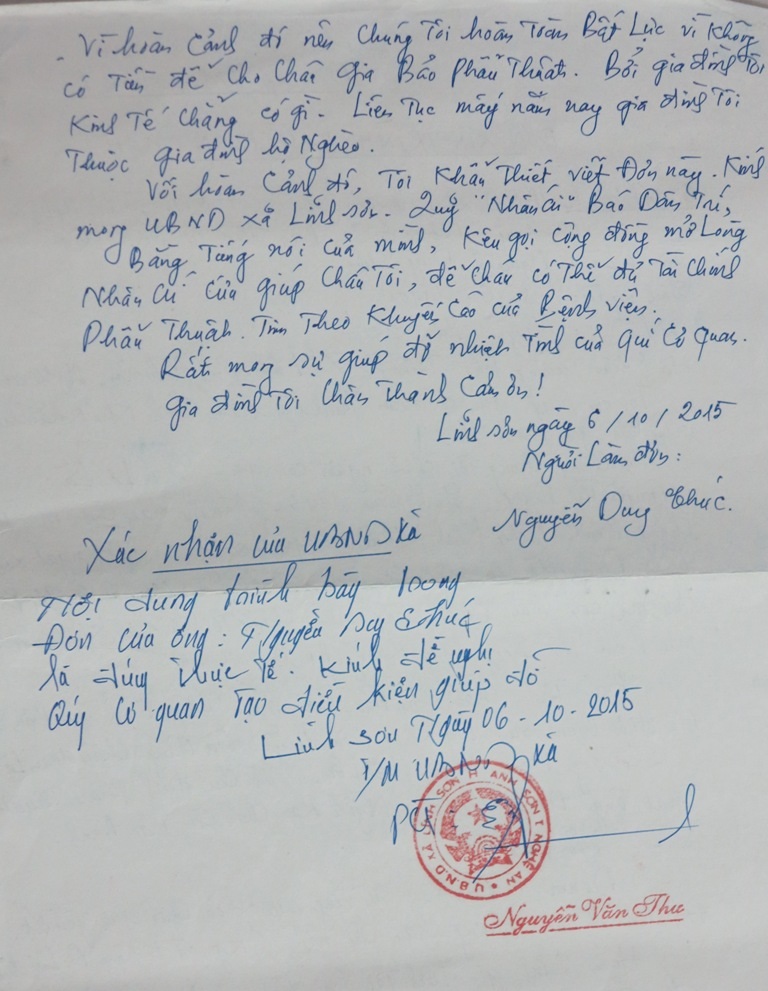 - Vì hoàn cảnh đó nên chúng Tôi hoàn Toàn Bất Lực vì không
có Tiền để cho cháu Gia Bảo Phẫu Thuật. Bởi gia đình Tôi
Kinh Tế chẳng có gì. Liên Tục mấy năm nay gia đình Tôi
Thuộc gia đình hộ Nghèo.
Với hoàn cảnh đó, Tôi Khẩn Thiết viết Đơn này. Kính
mong UBND xã Lĩnh sơn. Quỹ "Nhân ái" Báo Dân Trí,
Bằng Tiếng nói của mình, kêu gọi cộng đồng mở Lòng
Nhân ái của giúp cháu Tôi, để cháu có Thể đủ Tài chính
Phẫu Thuật. Tim Theo Khuyến cáo của Bệnh viện.
Rất mong sự giúp đỡ nhiệt Tình của Quí Cơ Quan.
Gia đình Tôi chân Thành Cảm ơn!
Lĩnh sơn ngày 6/10/2015
Người Làm đơn:
Nguyễn Duy Thức.
Xác nhận của UBND xã
Nội dung trình bày trong
Đơn của ông: Nguyễn Duy Thức
là đúng thực tế. Kính đề nghị
Qúy cơ quan tạo điều kiện giúp đỡ
Lĩnh sơn Ngày 06-10-2015
T/M UBND xã
PCT
U.B.N.D XÃ LĨNH SƠN H. ANH SƠN T. NGHỆ AN
Nguyễn Văn Thu